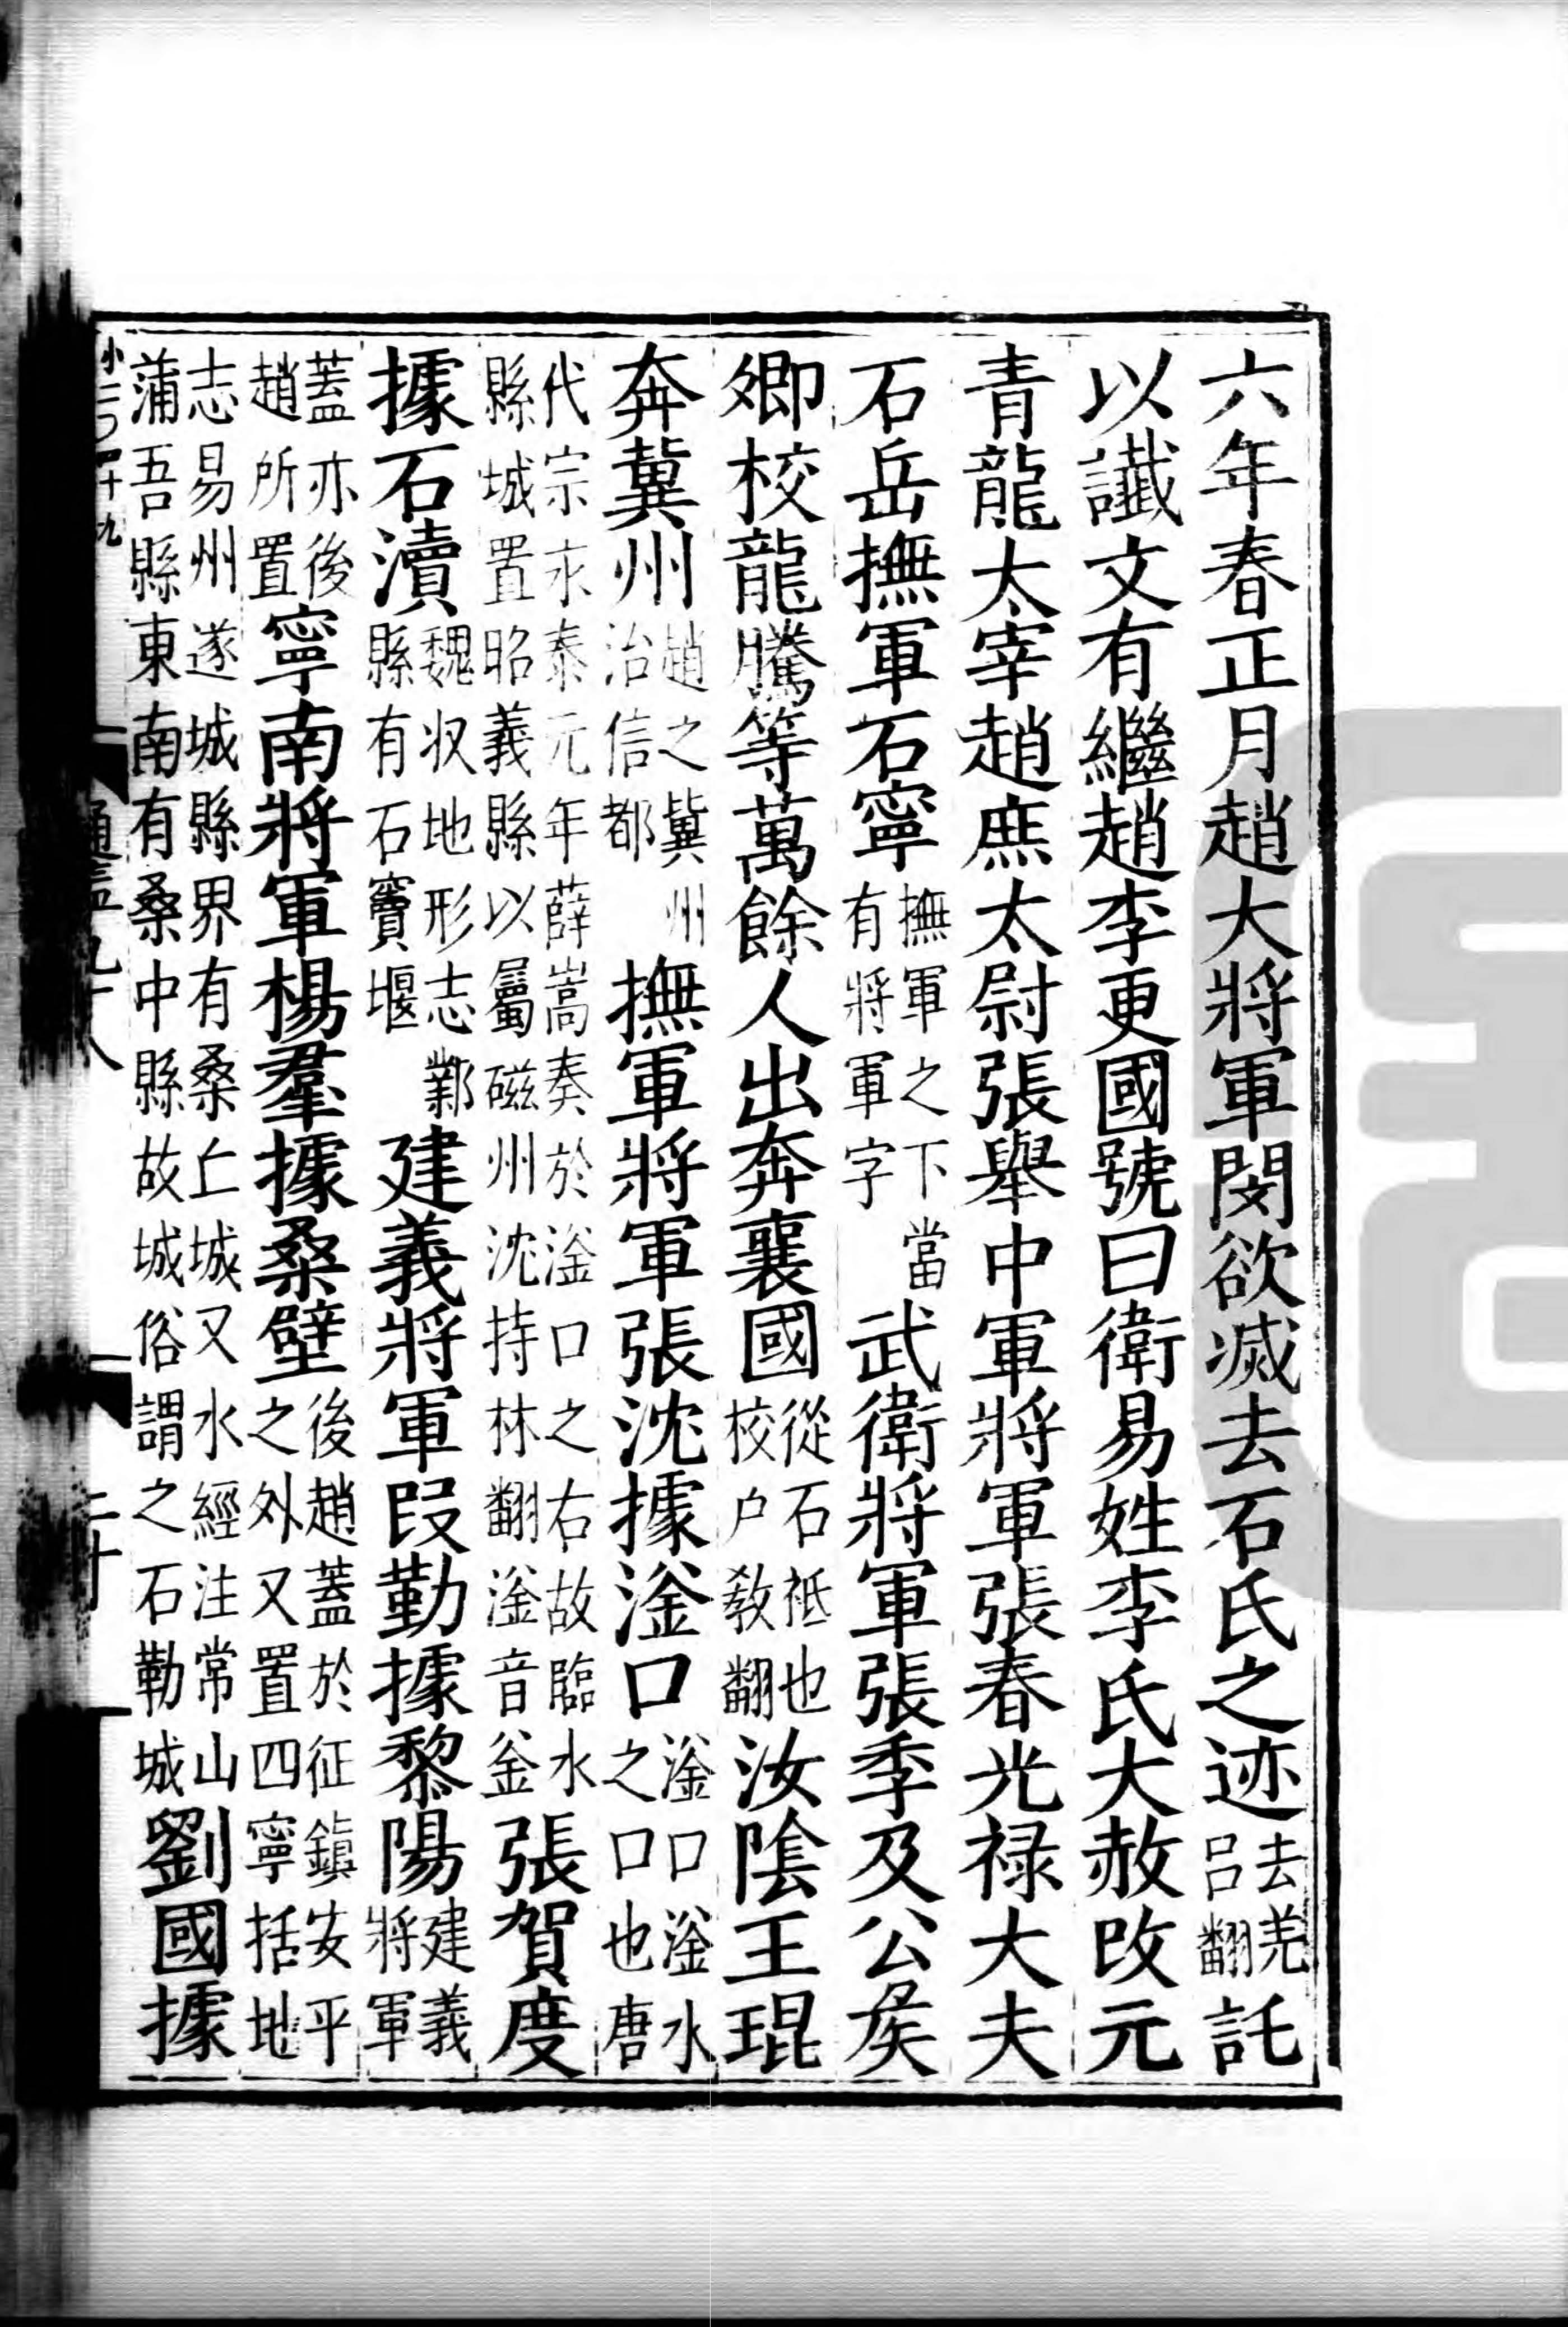 六年春正月趙大將軍閔欲滅去石氏之迹去羌呂翻託
以讖文有繼趙李更國號曰衛易姓李氏大赦改元
青龍太宰趙庶太尉張舉中軍將軍張春光祿大夫
石岳撫軍石寧撫軍之下當有將軍字武衛將軍張季及公矦
卿校龍騰等萬餘人出奔襄國從石祗也校户敎翻汝陰王琨
奔冀州趙之冀州治信都撫軍將軍張沈據滏口滏口滏水之口也唐
代宗永泰元年薛嵩奏於滏口之右故臨水縣城置昭義縣以屬磁州沈持林翻滏音釜張賀度
據石瀆魏收地形志鄴縣有石竇堰建義將軍段勤據黎陽建義將軍
蓋亦後趙所置寧南將軍楊羣據桑壁後趙蓋於征鎮安平之外又置四寧括地
志易州遂城縣界有桑丘城又水經注常山蒲吾縣東南有桑中縣故城俗謂之石勒城劉國據